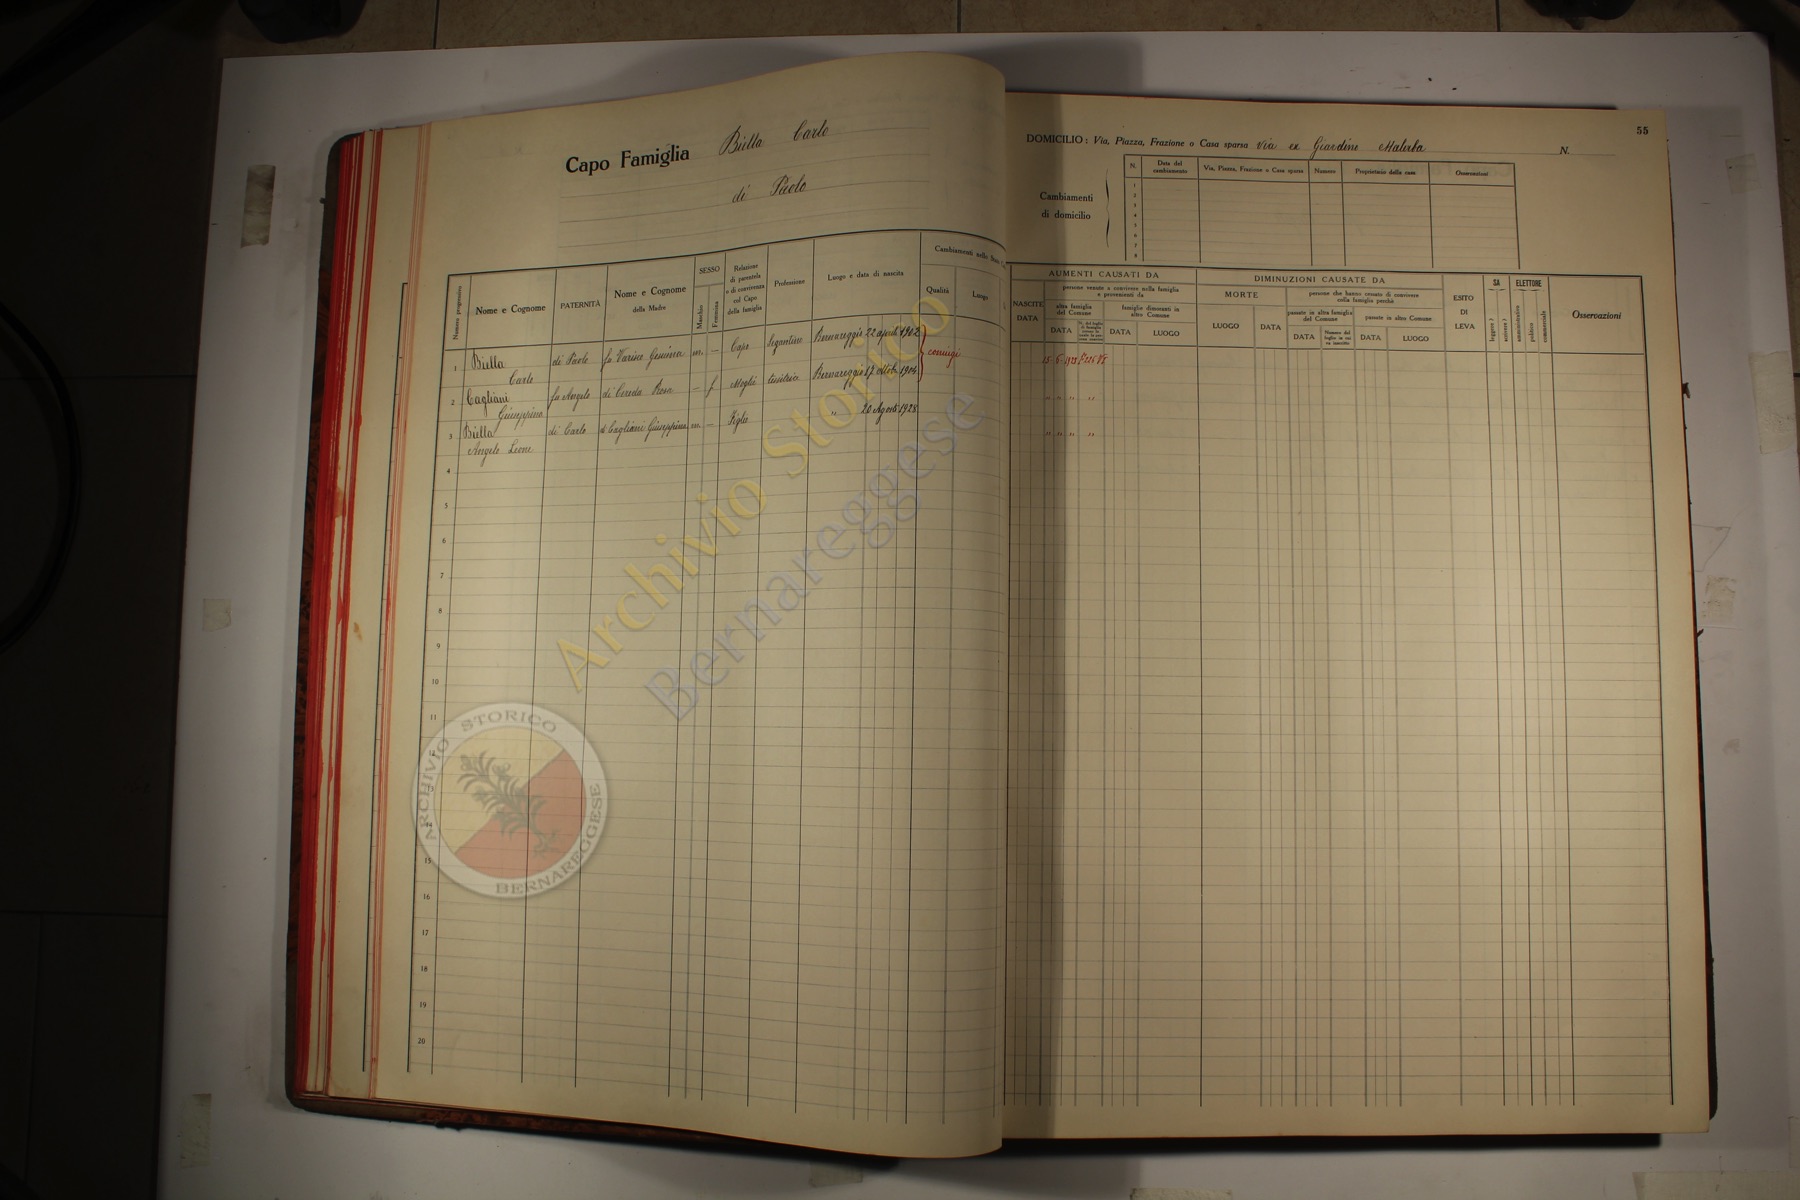 Capo Famiglia Biella Carlo
di Paolo
Numero progressivo
Nome e Cognome
PATERNITÀ
Nome e Cognome
della Madre
SESSO
Maschio
Femmina
Relazione
di parentela
o di convivenza
col Capo
della famiglia
Professione
Luogo e data di nascita
Cambiamenti nello Stato
Qualità
Luogo
1 Biella di Paolo fu Varisco Gessima m. — Capo Segantino Bernareggio 22 aprile 1902 coniugi
Carlo
2 Cagliani fu Angelo di Cereda Rosa — f Moglie tessitrice Bernareggio 17 ottob. 1904
Giuseppina
3 Biella di Carlo di Cagliani Giuseppina m. — Figlio „ 20 Agost. 1928
Angelo Leone
4
5
6
7
8
9
10
11
14
15
16
17
18
19
20
55
DOMICILIO : Via, Piazza, Frazione o Casa sparsa Via ex Giardino Malerba N.
Cambiamenti
di domicilio
N.
Data del
cambiamento
Via, Piazza, Frazione o Casa sparsa
Numero
Proprietario della casa
Osservazioni
1
2
3
4
5
6
7
8
AUMENTI CAUSATI DA
NASCITE
DATA
persone venute a convivere nella famiglia
e provenienti da
altra famiglia
del Comune
famiglie dimoranti in
altro Comune
DATA
DATA
LUOGO
DIMINUZIONI CAUSATE DA
MORTE
LUOGO
DATA
persone che hanno cessato di convivere
colla famiglia perchè
passate in altra famiglia
del Comune
passate in altro Comune
DATA
Numero del
foglio in cui
va inscritto
DATA
LUOGO
ESITO
DI
LEVA
SA
leggere
scrivere
ELETTORE
amministrativo
politico
commerciale
Osservazioni
15 6 1933
„ „ „ „
„ „ „ „
Archivio Storico
Bernareggese
ARCHIVIO STORICO
BERNAREGGESE